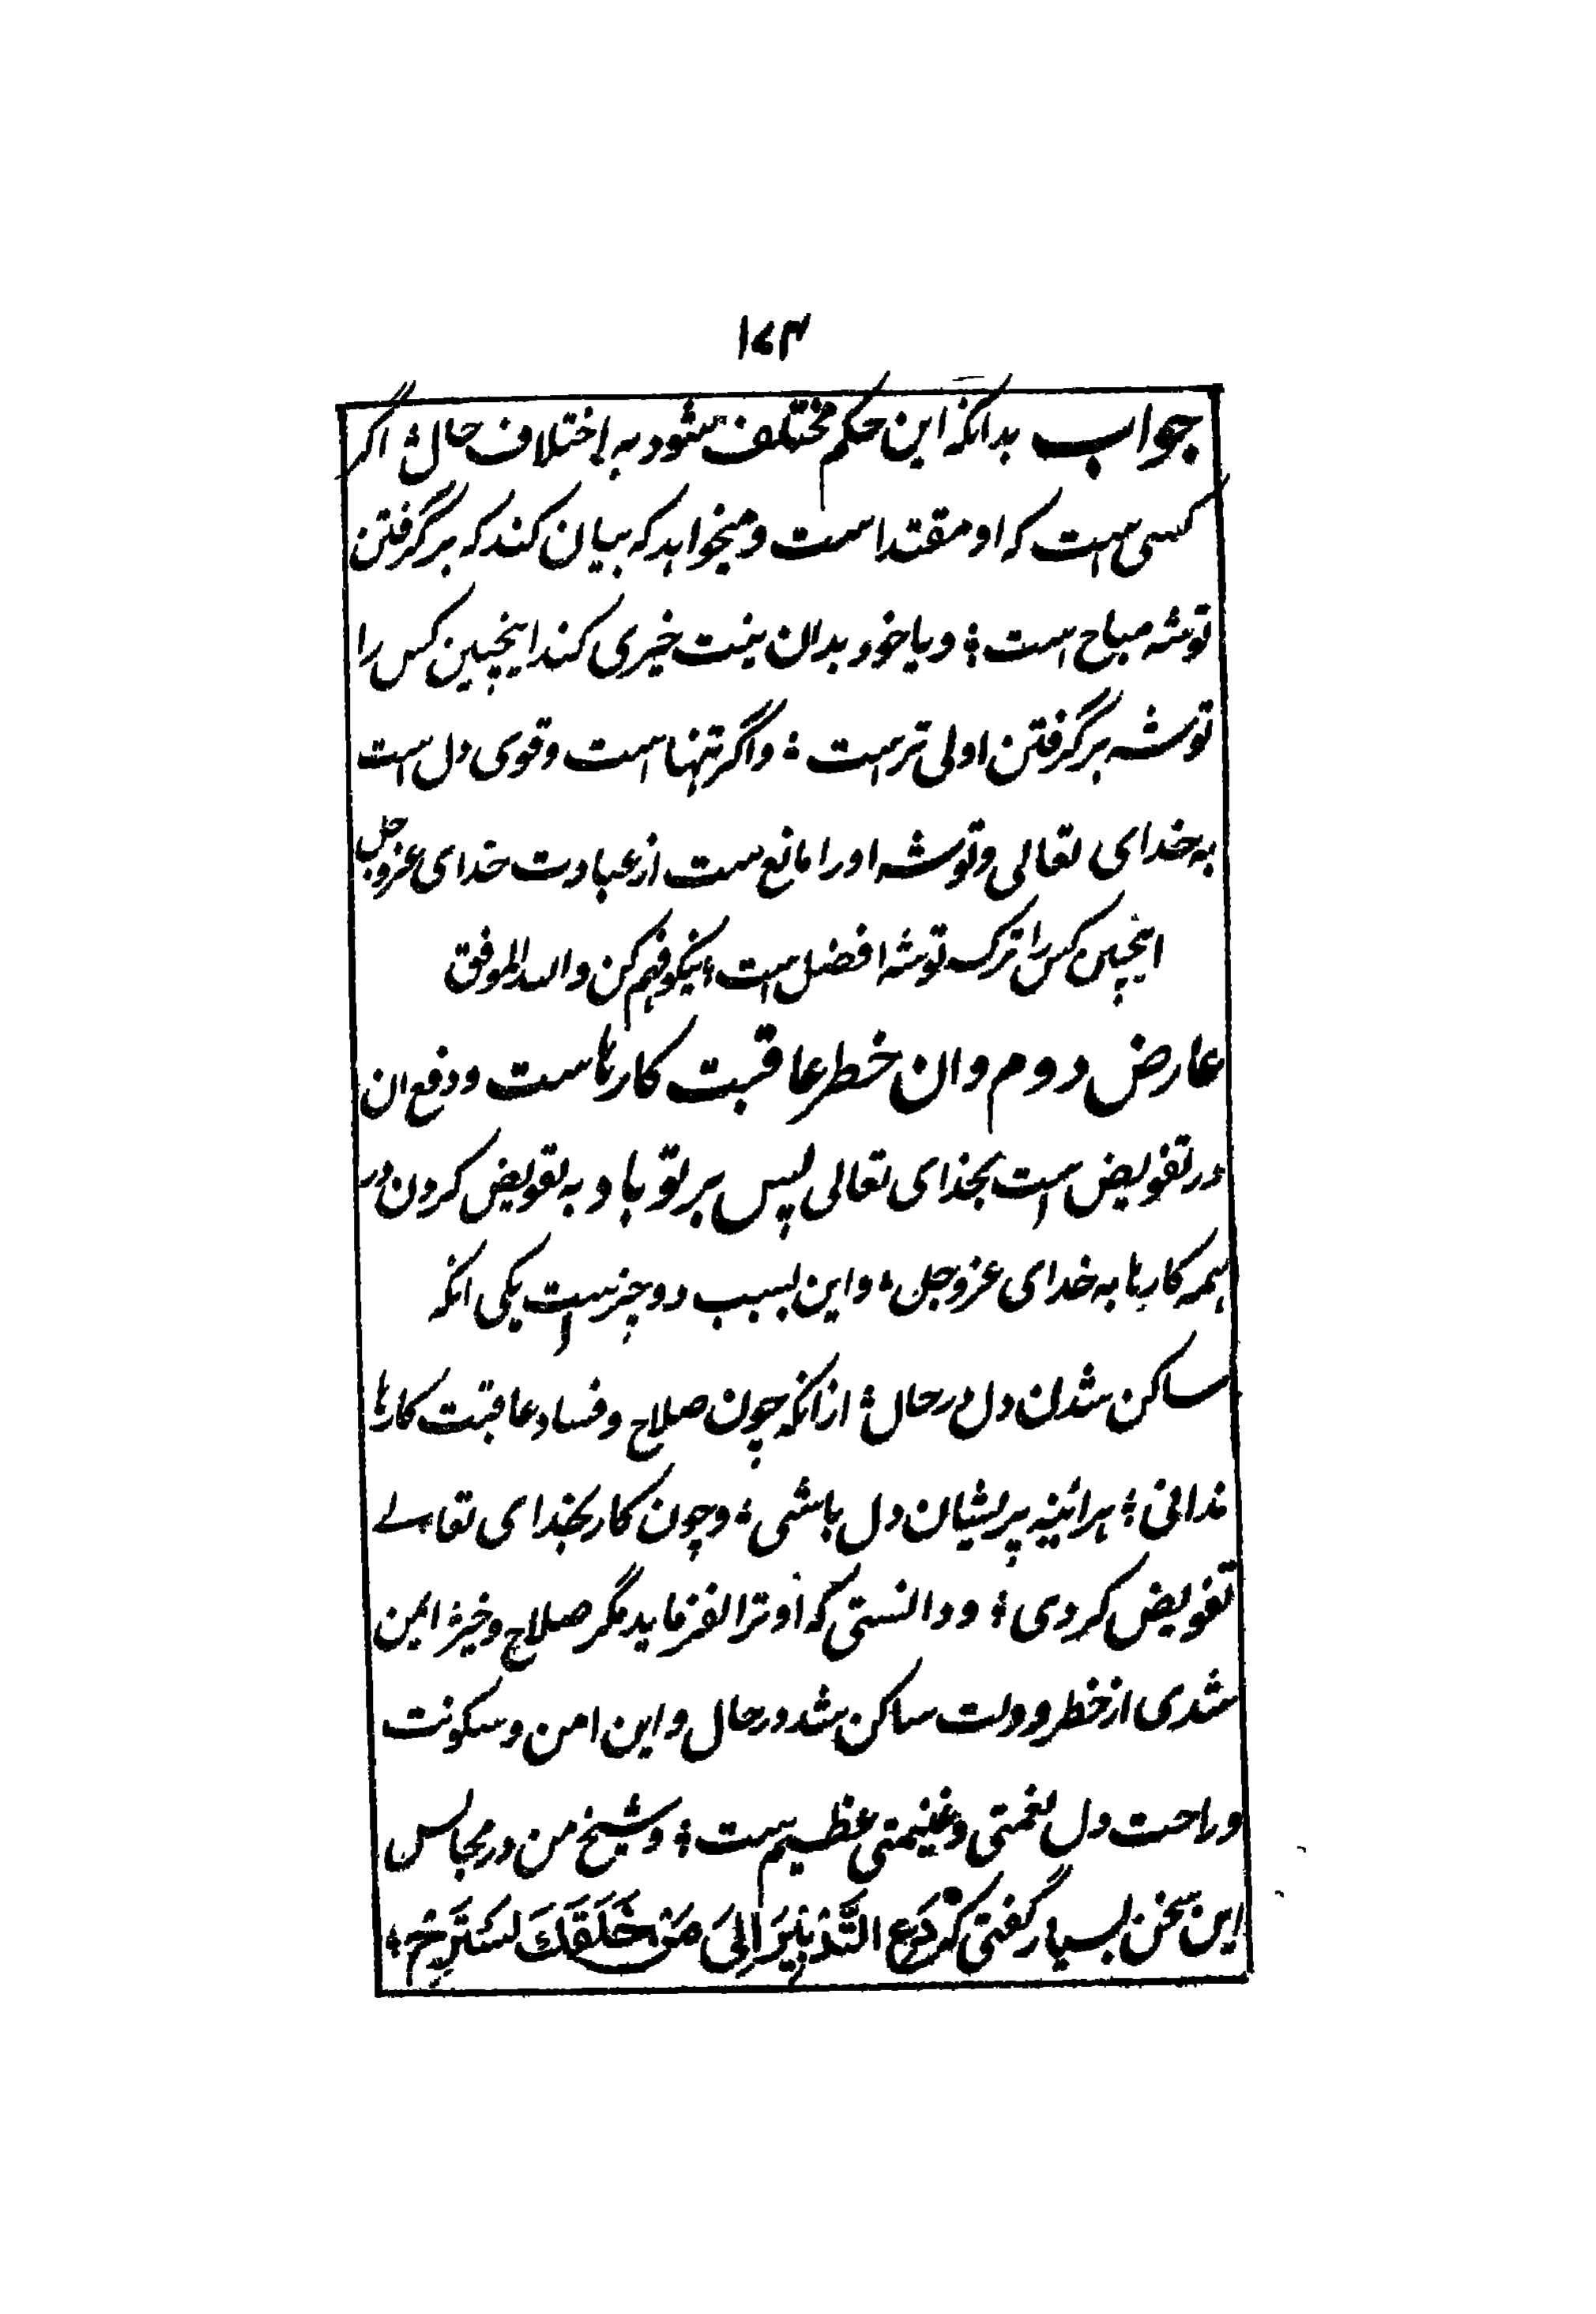 ۱۷۴
جواب بدانکه این حکم مختلف شود به اختلاف حال؛ اگر
کسی ست که او مقتدا ست و میخواهد که بیان کند که برگرفتن
توشه مباح است؛ و یا خود بدان نیت خیری کند اینچنین کس را
توشه برگرفتن اولی ترست؛ و اگر تنها ست و قوی دل است
به خدای تعالی و توشه او را مانع ست از عبادت خدای عزوجل
اینچنین کس را ترک توشه افضل است؛ نیکو فهم کن والله الموفق
عارض دوم و ان خطر عاقبت کارها ست و دفع ان
در تفویض است بخدای تعالی پس بر تو باد به تفویض کردن در
همه کارها به خدای عزوجل؛ و این بسبب دو چیز است یکی انکه
ساکن شدن دل در حال؛ از انکه چون صلاح و فساد عاقبت کارها
ندانی؛ هرائینه پریشان دل باشی؛ و چون کار بخدای تعالے
تفویض کردی؛ و دانستی که او ترا نفرماید مگر صلاح و خیر؛ ایمن
شدی از خطر و دلت ساکن شد در حال و این امن و سکونت
و راحت دل نعمتی و غنیمتی عظیم ست؛ و شیخ من در مجالس
این سخن بسیار گفتی که دَعِ التَّدْبِیْرَ اِلیَ مَنْ خَلَقَكَ تَسْتَرِحْ؛